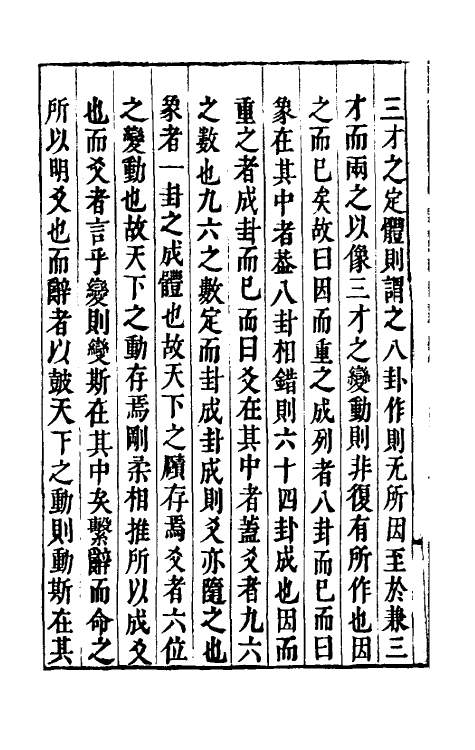 三才之定體則謂之八卦作則无所因至於兼三
才而兩之以像三才之變動則非復有所作也因
之而已矣故曰因而重之成列者八卦而已而曰
象在其中者葢八卦相錯則六十四卦成也因而
重之者成卦而已而曰爻在其中者蓋爻者九六
之數也九六之數定而卦成卦成則爻亦隨之也
象者一卦之成體也故天下之賾存焉爻者六位
之變動也故天下之動存焉剛柔相推所以成爻
也而爻者言乎變則變斯在其中矣繫辭而命之
所以明爻也而辭者以鼓天下之動則動斯在其